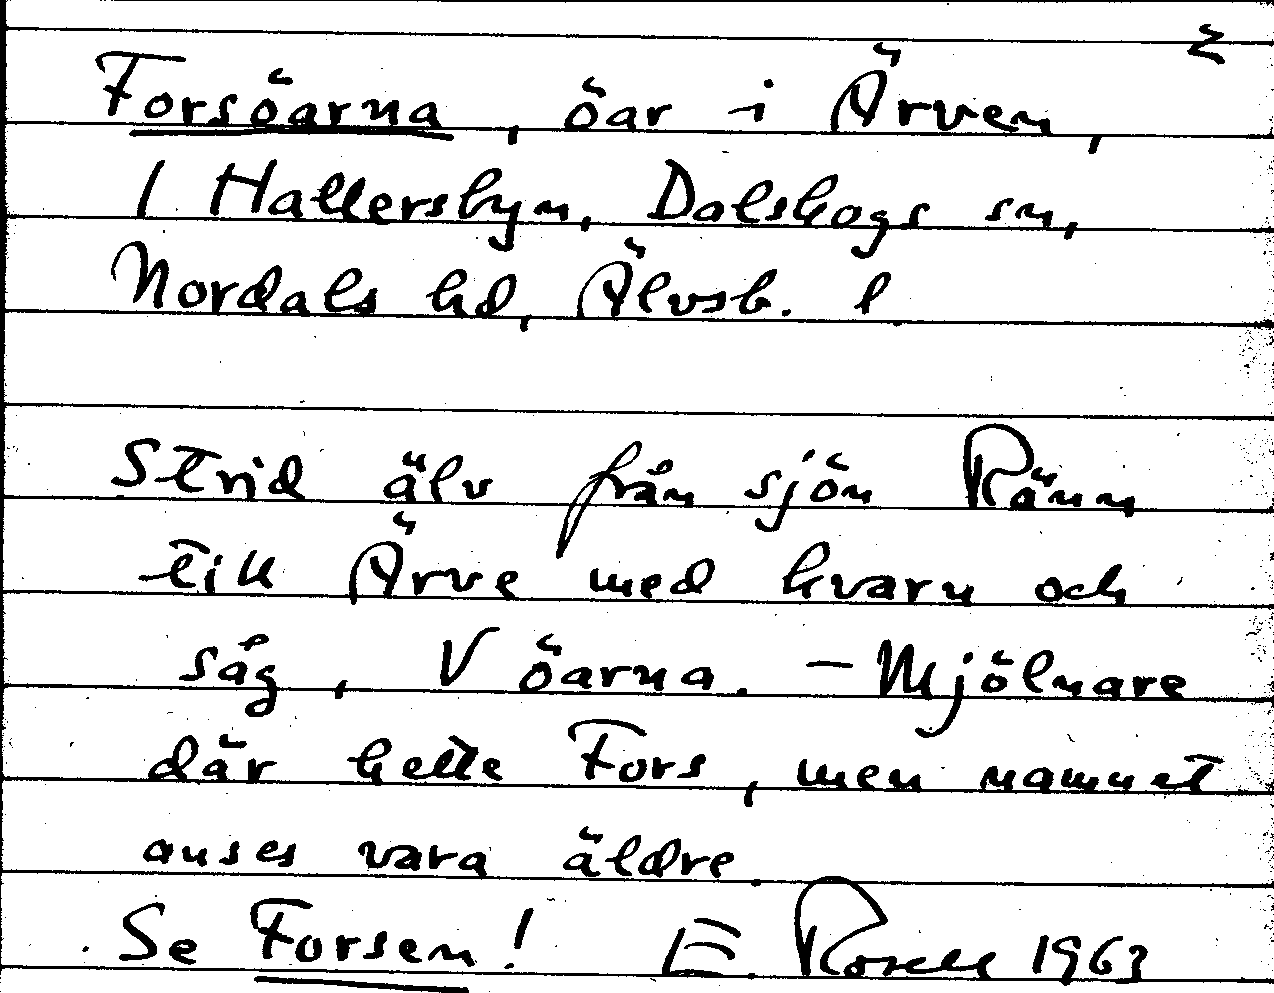 Forsöarna, öar i Ärven,
1 Hallersbyn, Dalskogs sn,
Nordals hd, Älvsb. l
Strid älv från sjön Ränn
till Ärve med kvarn och
såg, V öarna. – Mjölnare
där hette Fors, men namnet
anses vara äldre.
Se Forsen! E. Rosell 1963